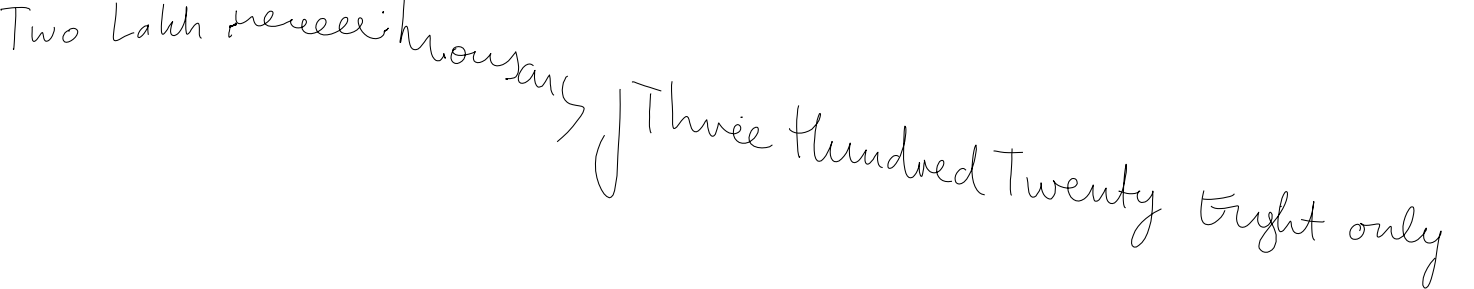 Two Lakh Thousand Three Hundred Twenty Eight only